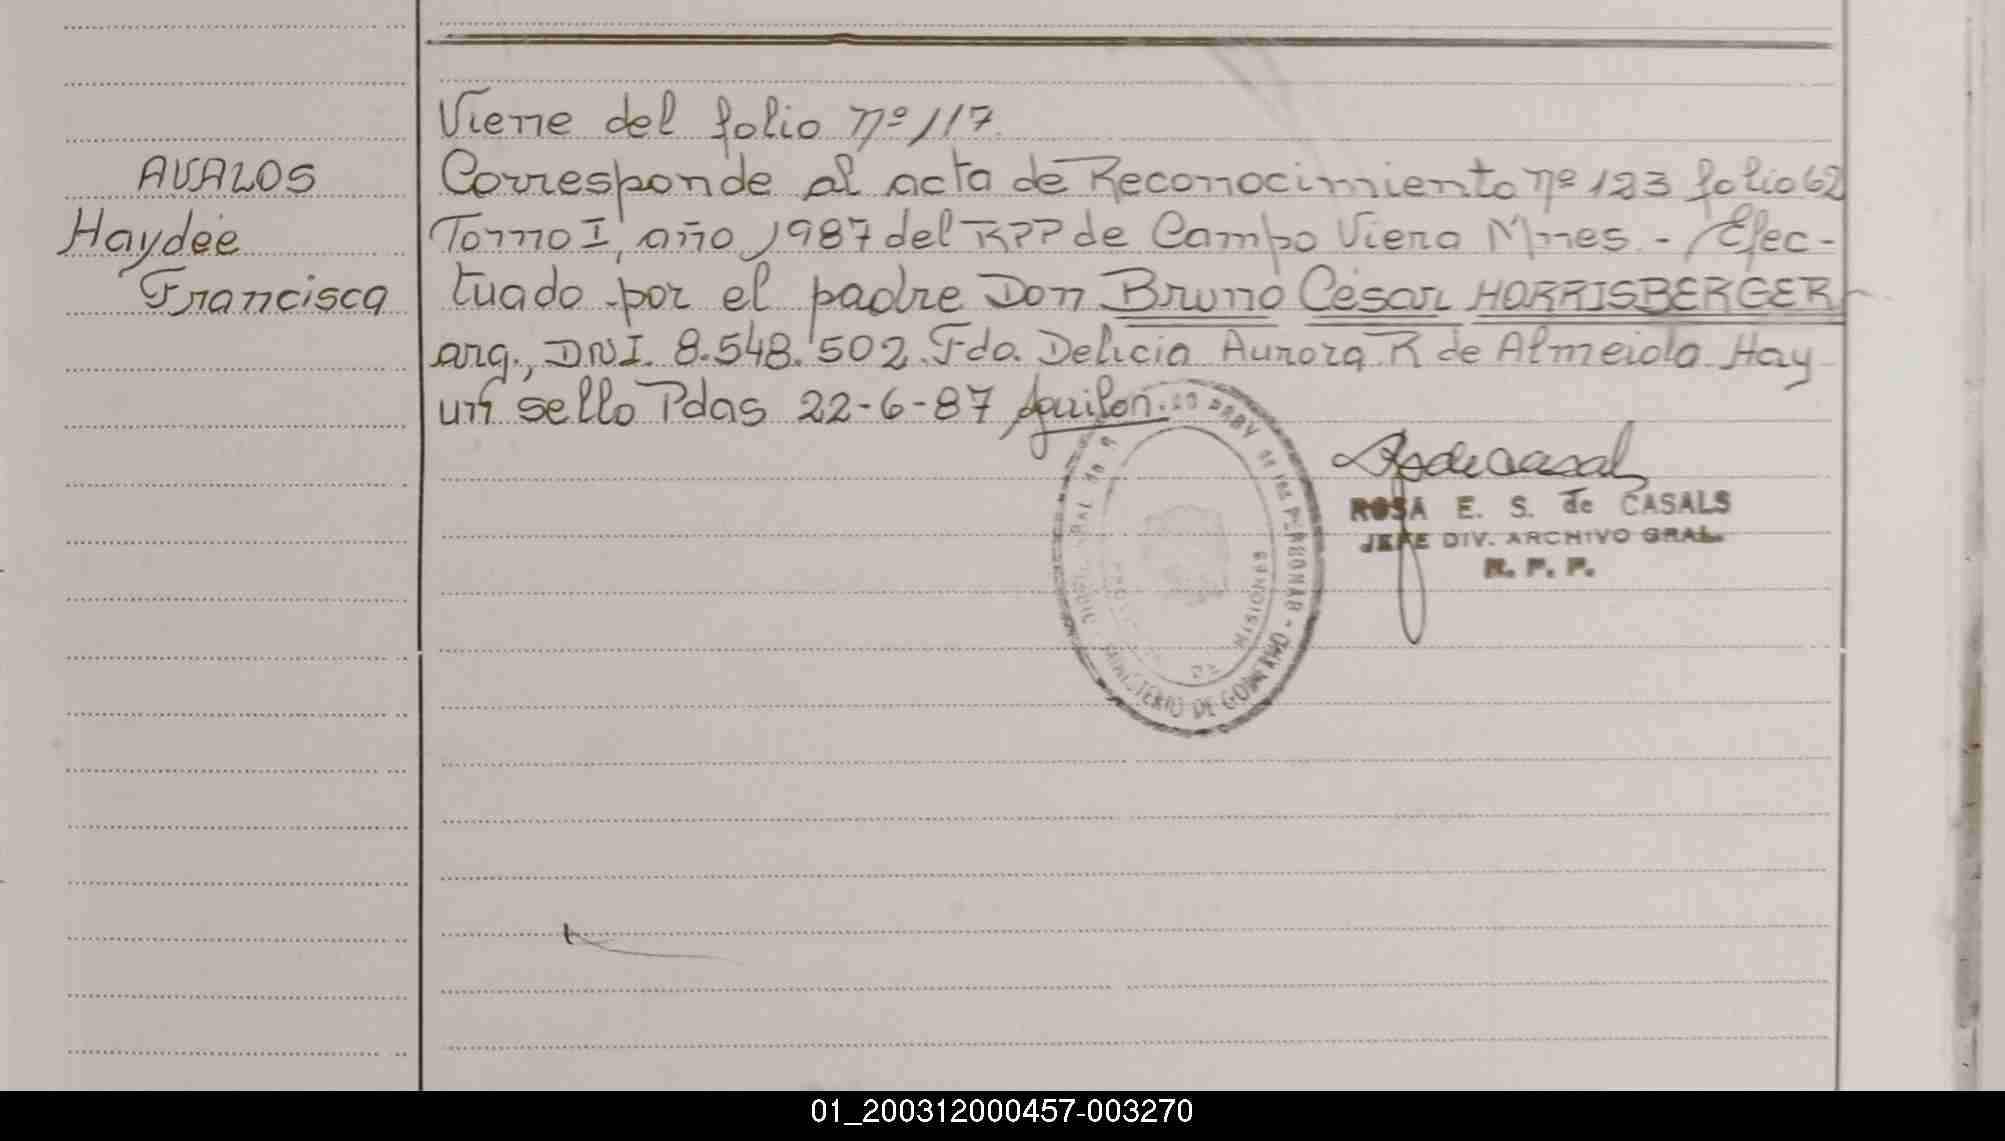 Viene del folio nº 117.
AVALOS
Haydée
Francisca
Corresponde al acta de Reconocimiento nº 123 folio 62
Tomo I, año 1987 del RPP de Campo Viera Mnes. - / Efec-
tuado por el padre Don Bruno César HORRISBERGER
arg., DNI. 8.548.502. Fdo. Delicia Aurora R de Almeida Hay
un sello Pdas 22-6-87
ROSA E. S. de CASALS
JEFE DIV. ARCHIVO GRAL.
R. P. P.
de las PERSONAS - MINISTERIO DE GOBIERNO
MISIONES
01_200312000457-003270